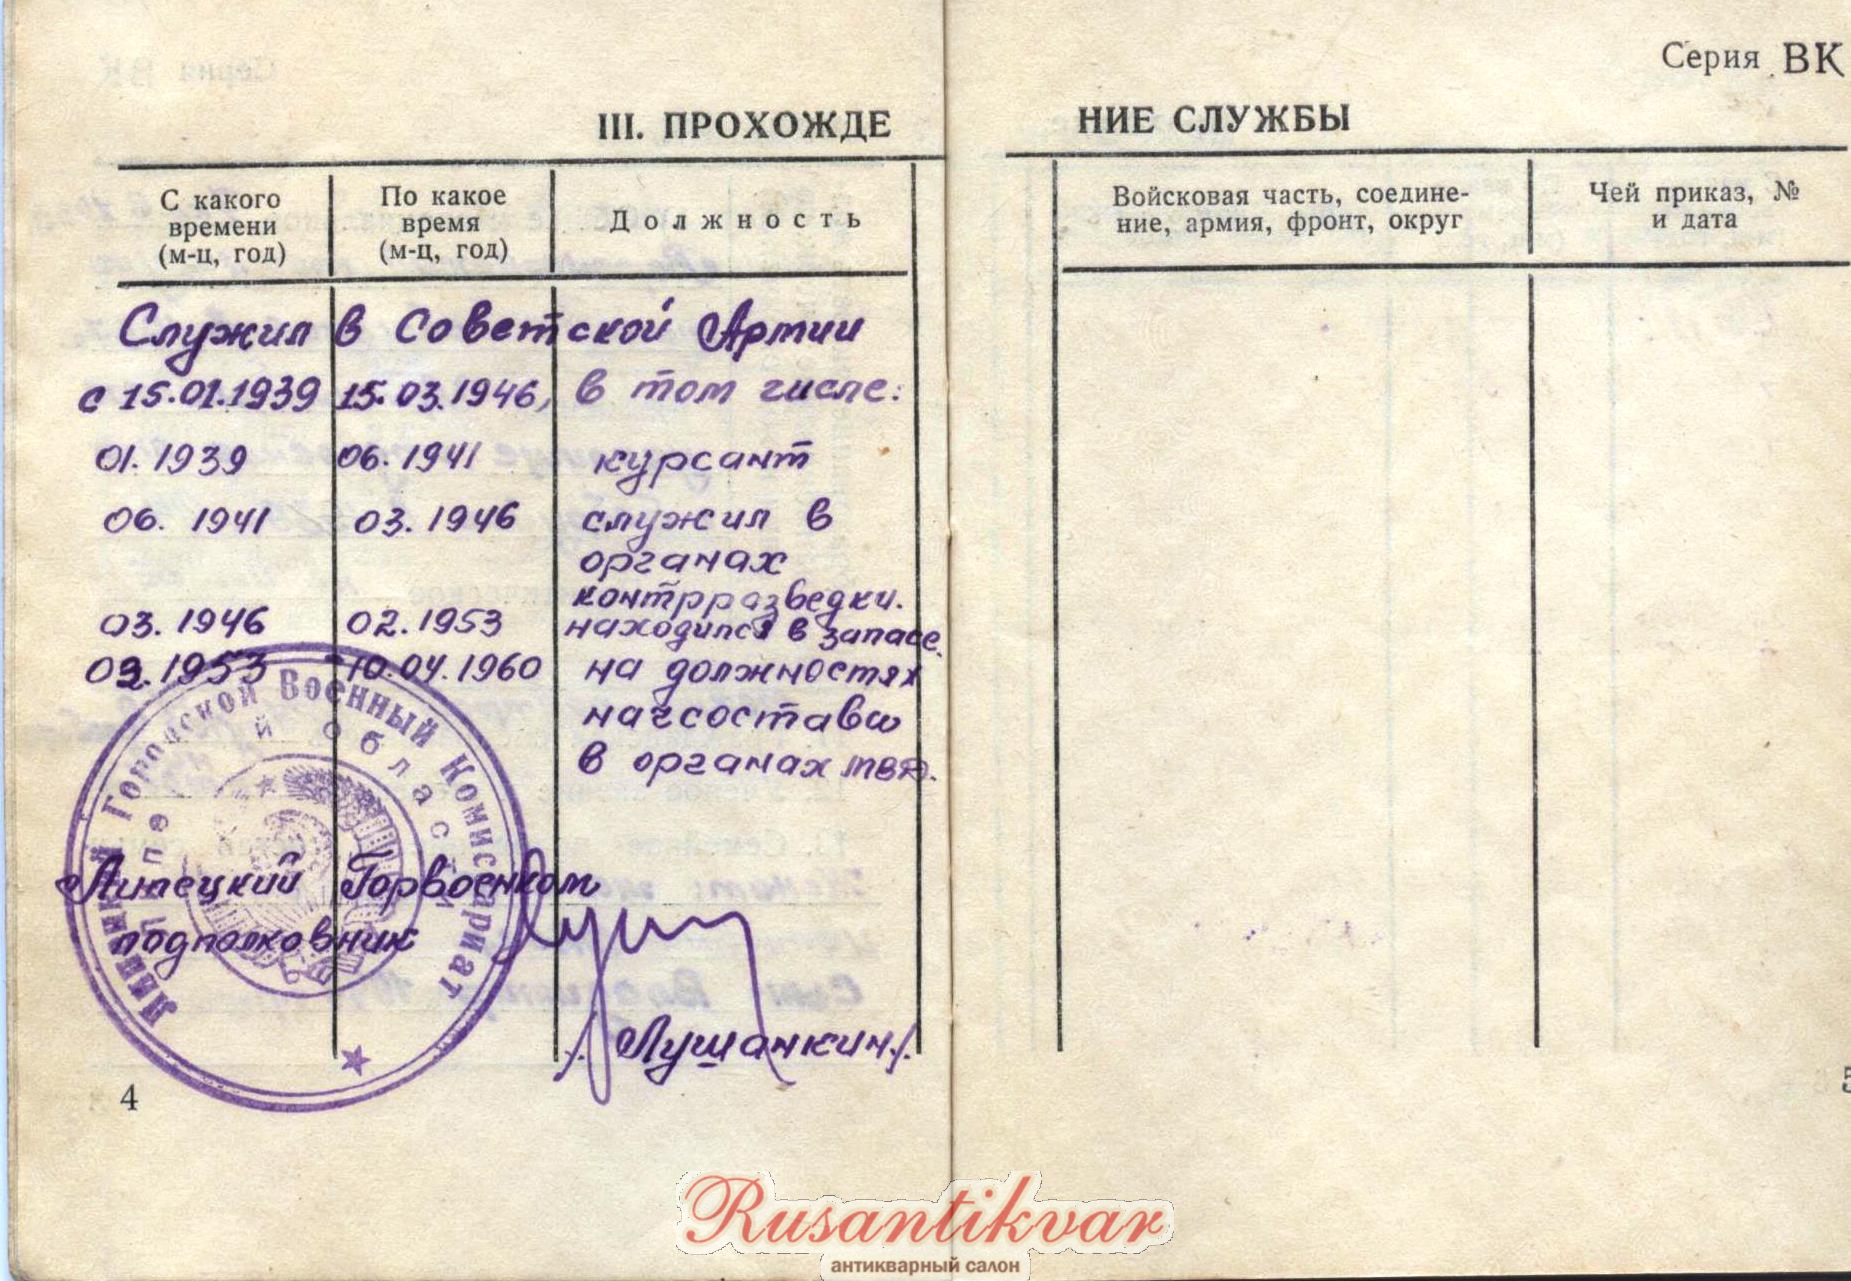 Серия ВК
III. ПРОХОЖДЕ
НИЕ СЛУЖБЫ
С какого
времени
(м-ц, год)
По какое
время
(м-ц, год)
Должность
Войсковая часть, соедине-
ние, армия, фронт, округ
Чей приказ, №
и дата
Служил в Советской Армии
с 15.01.1939 15.03.1946, в том числе:
01.1939 06.1941 курсант
06.1941 03.1946 служил в
органах
контрразведки.
03.1946 02.1953 находился в запасе.
02.1953 -10.04.1960 на должностях
начсостава
в органах МВД.
Липецкий Городской Военный Комиссариат
й области
Липецкий Горвоенком
подполковник
/Лушанкин/.
4
5
Rusantikvar
антикварный салон